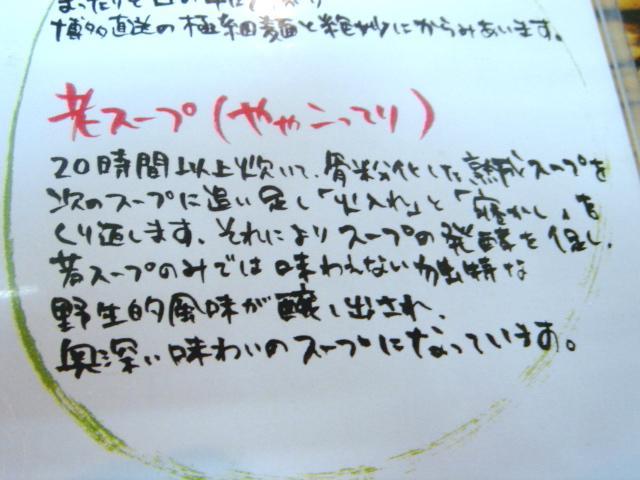 まったりと口の中に
博多直送の極細麺と絶妙にからみあいます。
老スープ(ややこってり)
20時間以上炊いて、骨粉化した熟成スープを
次のスープに追い足し「火入れ」と「寝かし」を
くり返します。それによりスープの発酵を促し、
若スープのみでは味わえない独特な
野生的風味が醸し出され、
奥深い味わいのスープになっています。